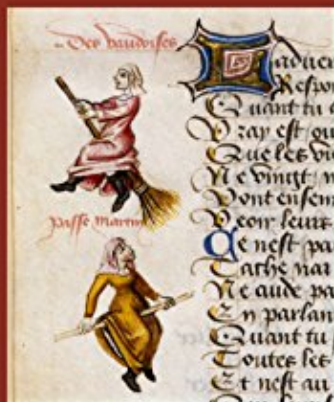 Des vaudoises
Passe Martin
L aduer
Respon
Quant tu
Vray est qu
Que les vie
Ne vingt n
Vont ensem
Veoir leurs
Ce nest pa
Tache par
Ne cuide pa
En parlan
Quant tu
Toutes les
Et nest au